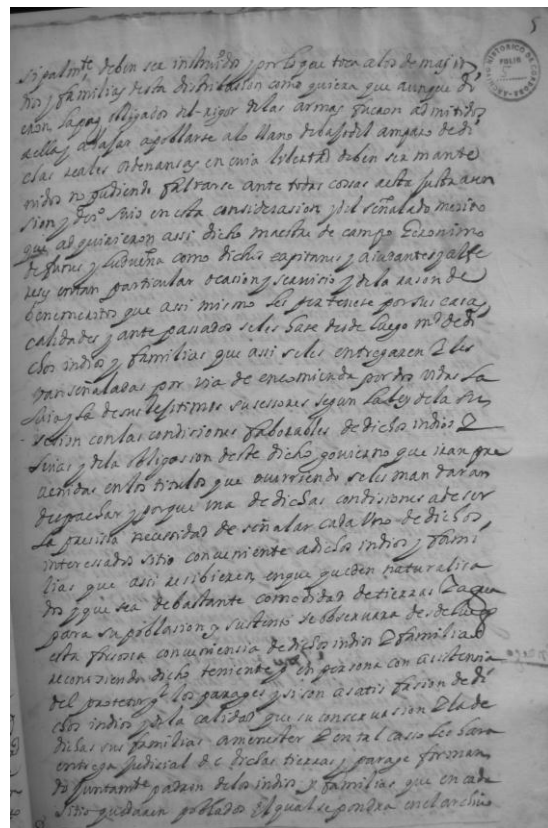 5
ARCHIVO HISTORICO DE CORDOBA
FOLIO
sipalmte deben ser instruidos y por lo que toca a los demas in
dios y familias desta distribucion como quiera que aunque di
eron la paz obligados del rigor de las armas fueron admitidos
a ella y a bajar a poblarse a lo llano debajo del amparo de di
chas reales ordenansas en cuia libertad deben ser mante
nidos no pudiendo faltarse ante todas cosas a esta justa aten
sion y en esta considerasion y del señalado merito
que adquirieron assi dicho maestre de campo Geronimo
de funes y ludueña como dichos capitanes y aiudantes y alfe
res y en tan particular ocasion y servicio y de la rason de
benemeritos que assi mismo les pertenese por sus casas
calidades y ante pasados seles hase desde luego md de di
chos indios y familias que assi seles entregaren Z les
van señaladas por via de encomienda por dos vidas la
suia y la de sus lejitimos susessores segun la ley de la su
sesion con las condiciones faborables de dichos indios Z
suias y de la obligasion deste dicho govierno que iran pre
venidas en los titulos que ocurriendo seles mandaran
despachar y porque una de dichas condisiones a de ser
la presisa necesidad de señalar cada uno de dichos
interessados sitio conveniente a dichos indios y fami
lias que assi resibieren en que queden naturalisa
dos y que sea de bastante comodidad de tierras Z agua
para su poblasion y sustento se observara desde luego
esta forsosa conveniensia de dichos indios Z familias
reconosiendo dicho teniente en persona con asistensia
del protetor los parages y si son a satisfasion de di
chos indios y de la calidad que su conservasion Z la de
dichas sus familias a menester Z en tal casso les hara
entrega judicial de dichas tierras y paraje forman
do juntamte padron de los indios y familias que en cada
sitio quedaren poblados el qual se pondra en el archivo